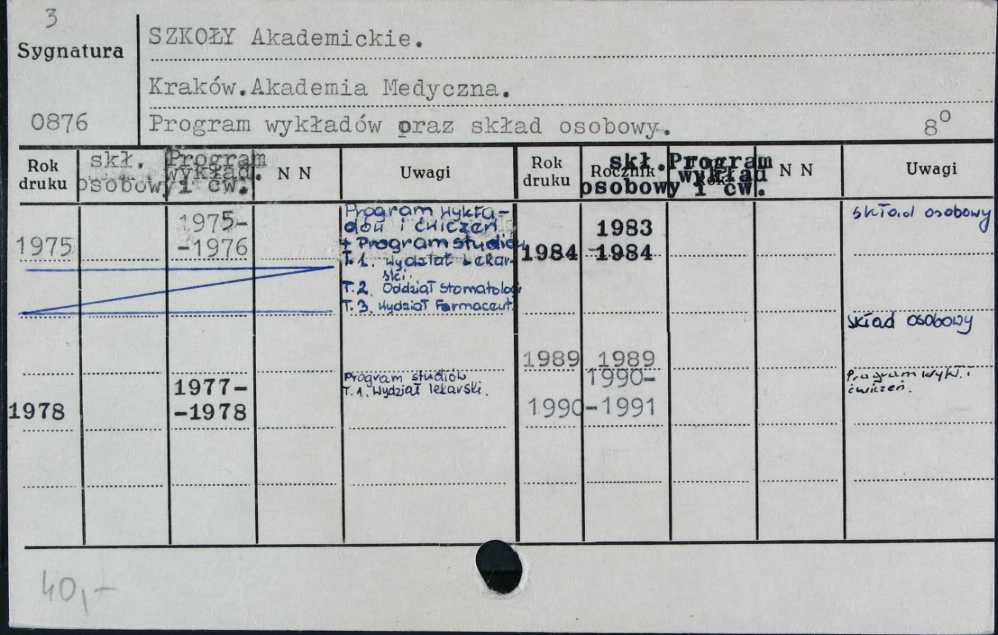 3
Sygnatura
SZKOŁY Akademickie.
Kraków.Akademia Medyczna.
0876
Program wykładów oraz skład osobowy.
8°
Rok druku
skł. osobowy
Program wykład. i ćw.
N N
Uwagi
Rok druku
Rocznik
skł. osobowy
Program wykład i ćw.
N N
Uwagi
1975
1975-
-1976
Program wykła-
dów i ćwiczeń
+ Program studiów
T.1. Wydział Lekar-
ski.
T.2. Oddział Stomatolog
T.3. Wydział Farmaceut.
1978
1977-
-1978
Program studiów
T.1. Wydział lekarski.
1984
1983
1984
skład osobowy
1989
1989
skład osobowy
1990
1990-
-1991
Program wykł. i
ćwiczeń.
40,-